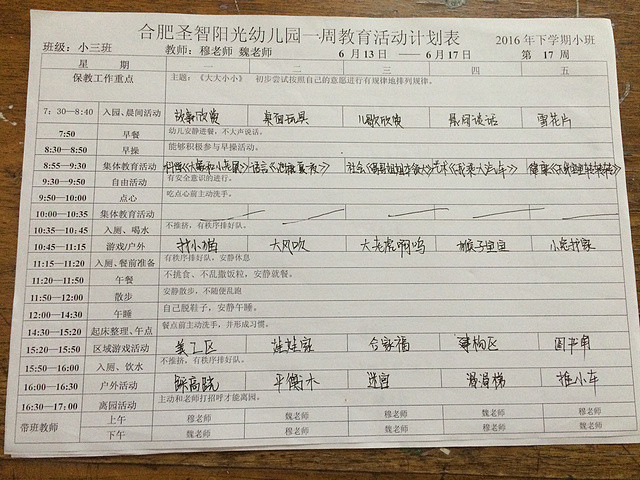 合肥圣智阳光幼儿园一周教育活动计划表
班级：小三班 教师：穆老师 魏老师 6 月 13 日 ——6 月 17 日 2016 年下学期小班 第 17 周
星 期 一 二 三 四 五
保教工作重点 主题：《大大小小》 初步尝试按照自己的意愿进行有规律地排列规律。
7：30—8:40 入园、晨间活动 故事欣赏 桌面玩具 儿歌欣赏 晨间谈话 雪花片
7:50 早餐 幼儿安静进餐，不大声说话。
8:30—8:50 早操 能够积极参与早操活动。
8:55—9:30 集体教育活动 科学 语言 社会 艺术 健康
9:30—9:50 自由活动 有安全意识的进行。
9:50—10:00 点心 吃点心前主动洗手。
10:00—10:35 集体教育活动
10:35—10:45 入厕、喝水 不推挤，有秩序排好队。
10:45—11:15 游戏/户外 找小猫 大风吹 大老虎啊呜 猴子 小兔
11:15—11:20 入厕、餐前准备 有秩序排好队，安静休息
11:20—11:50 午餐 不挑食、不乱撒饭粒，安静就餐。
11:50—12:00 散步 安静散步，不随便乱跑
12:00—14:30 午睡 自己脱鞋子，安静午睡。
14:30—15:20 起床整理、午点 餐点前主动洗手，并形成习惯。
15:20—15:50 区域游戏活动 美工区 娃娃家 合家福 建构区 图书角
15:50—16:00 入厕、饮水 不推挤，有秩序排好队。
16:00—16:30 户外活动 踩高跷 平衡木 迷宫 滑滑梯 推小车
16:30—17:00 离园活动 主动和老师打招呼才能离园。
带班教师 上午 穆老师 魏老师 穆老师 魏老师 穆老师
下午 魏老师 穆老师 魏老师 穆老师 魏老师